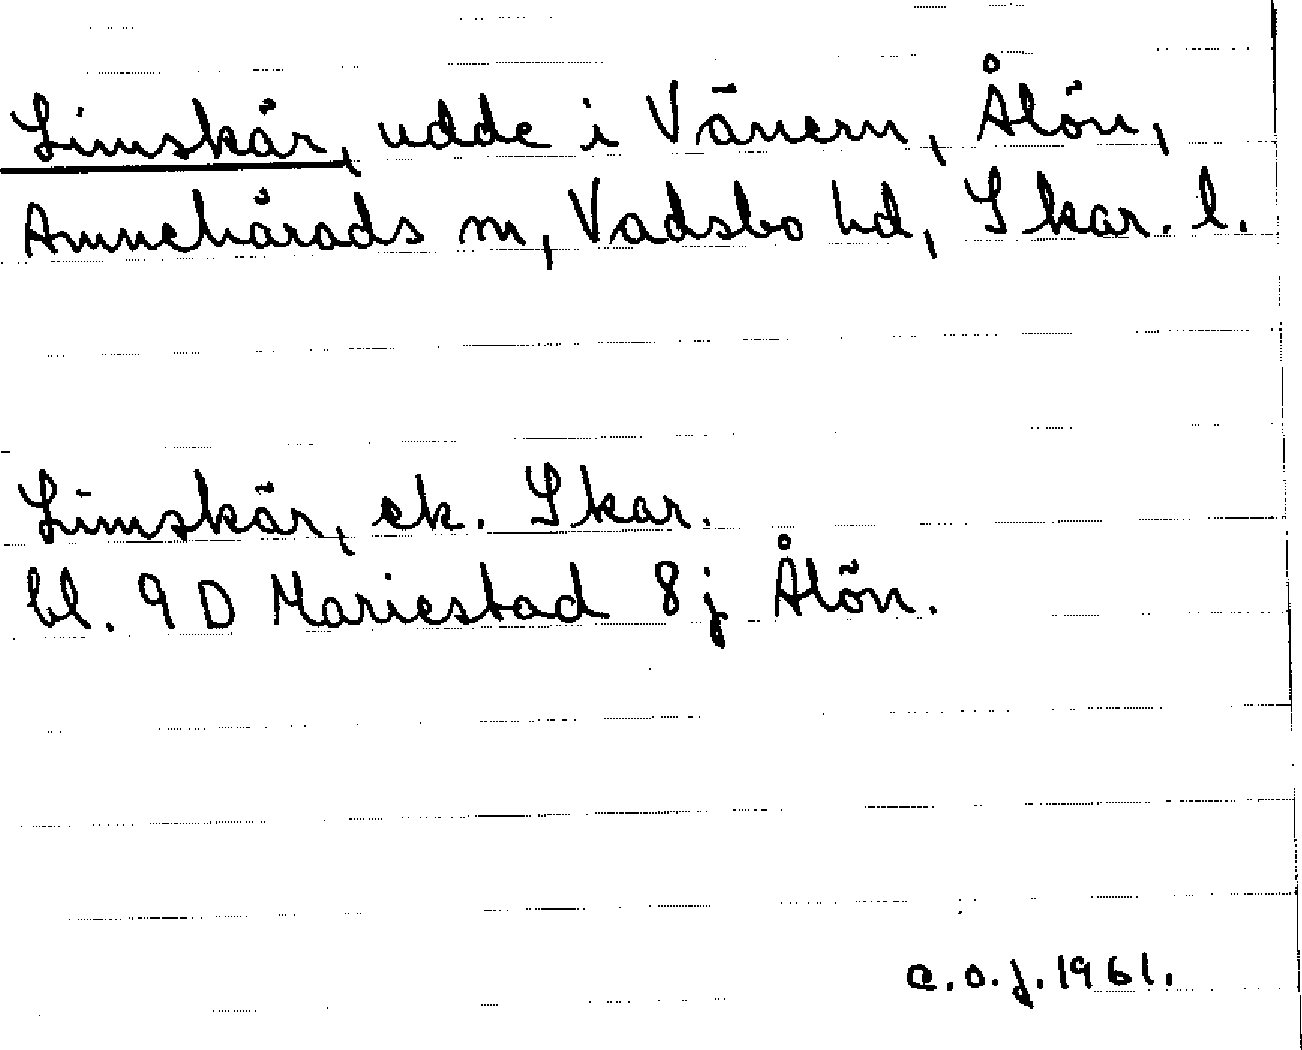 Limskär, udde i Vänern, Ålön,
Amnehärads sn, Vadsbo hd, Skar. l.
Limskär, ek. Skar.
bl. 9 D Mariestad 8 j Ålön.
C.O.J. 1961.